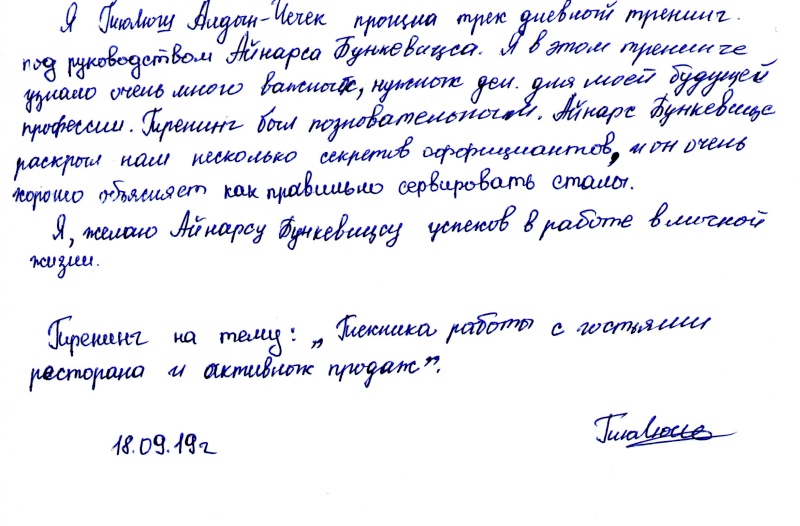 Я Тюлюш Алдын-Чечек прошла трех дневной тренинг.
под руководством Айнарса Бункевицса. Я в этом тренинге
узнало очень много важных, нужных для моей будущей
профессии. Тренинг был позновательным. Айнарс Бункевицс
раскрыл нам несколько секретов оффициантов, и он очень
хорошо объясняет как правильно сервировать сталы.
Я, желаю Айнарсу Бункевицсу успехов в работе в личной
жизни.
Тренинг на тему: „Техника работы с гостьями
ресторана и активных продаж”.
18.09.19г